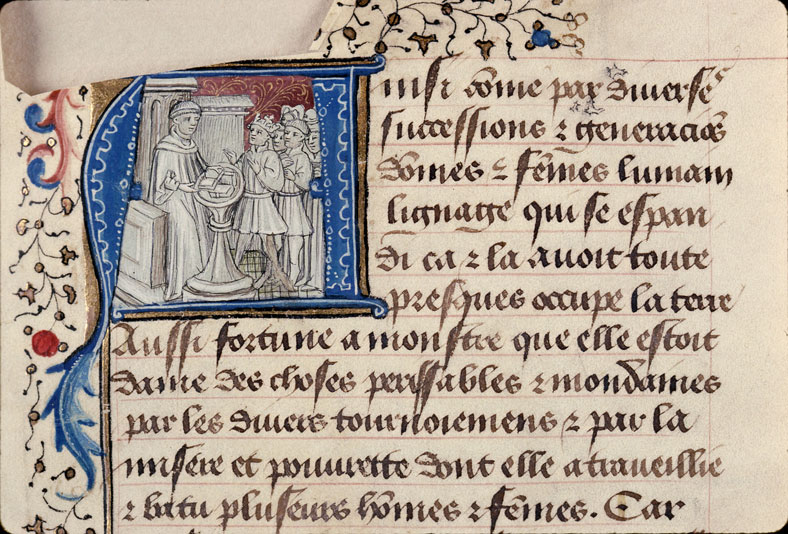 Ainsi cōme par diverses
successions ⁊ generaciōs
dōmes ⁊ fēmes lumain
lignaige qui se espan
di ca ⁊ la avoit toute
presques occupe la terre
Aussi fortune a monstre que elle estoit
dame des choses perissables ⁊ mondaines
par les divers tournoiemens ⁊ par la
misere et pouurette dont elle a traveillie
⁊ batu pluseurs hōmes ⁊ fēmes. Car